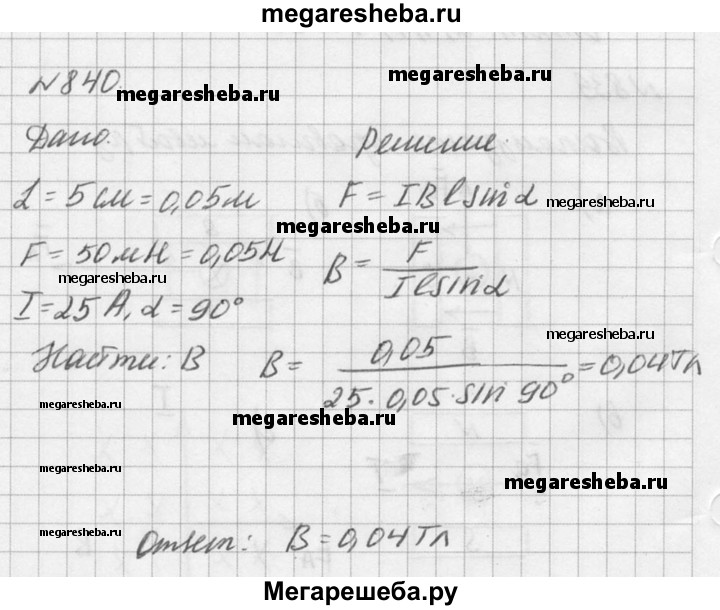 megaresheba.ru
№840.
megaresheba.ru
Дано. Решение.
L = 5 см = 0,05 м F = IBlsinα
megaresheba.ru
megaresheba.ru
F = 50 мН = 0,05 Н B = F / Ilsinα
megaresheba.ru
I = 25 А, α = 90°
megaresheba.ru
Найти: B B = 0,05 / 25·0,05·sin 90° = 0,04 Тл
megaresheba.ru
megaresheba.ru
megaresheba.ru
megaresheba.ru
megaresheba.ru
Ответ: B = 0,04 Тл
Мегарешеба.ру